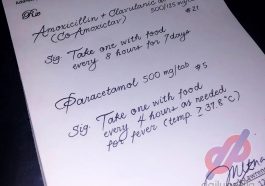 Rx
Amoxicillin + Clavulanic
(Co-Amoxiclav) 500/125 mg/tab
#21
Sig. Take one with food
every 8 hours for 7 days
Paracetamol 500 mg/tab #5
Sig. Take one with food
every 4 hours as needed
for fever (temp. ≥ 37.8 °C)